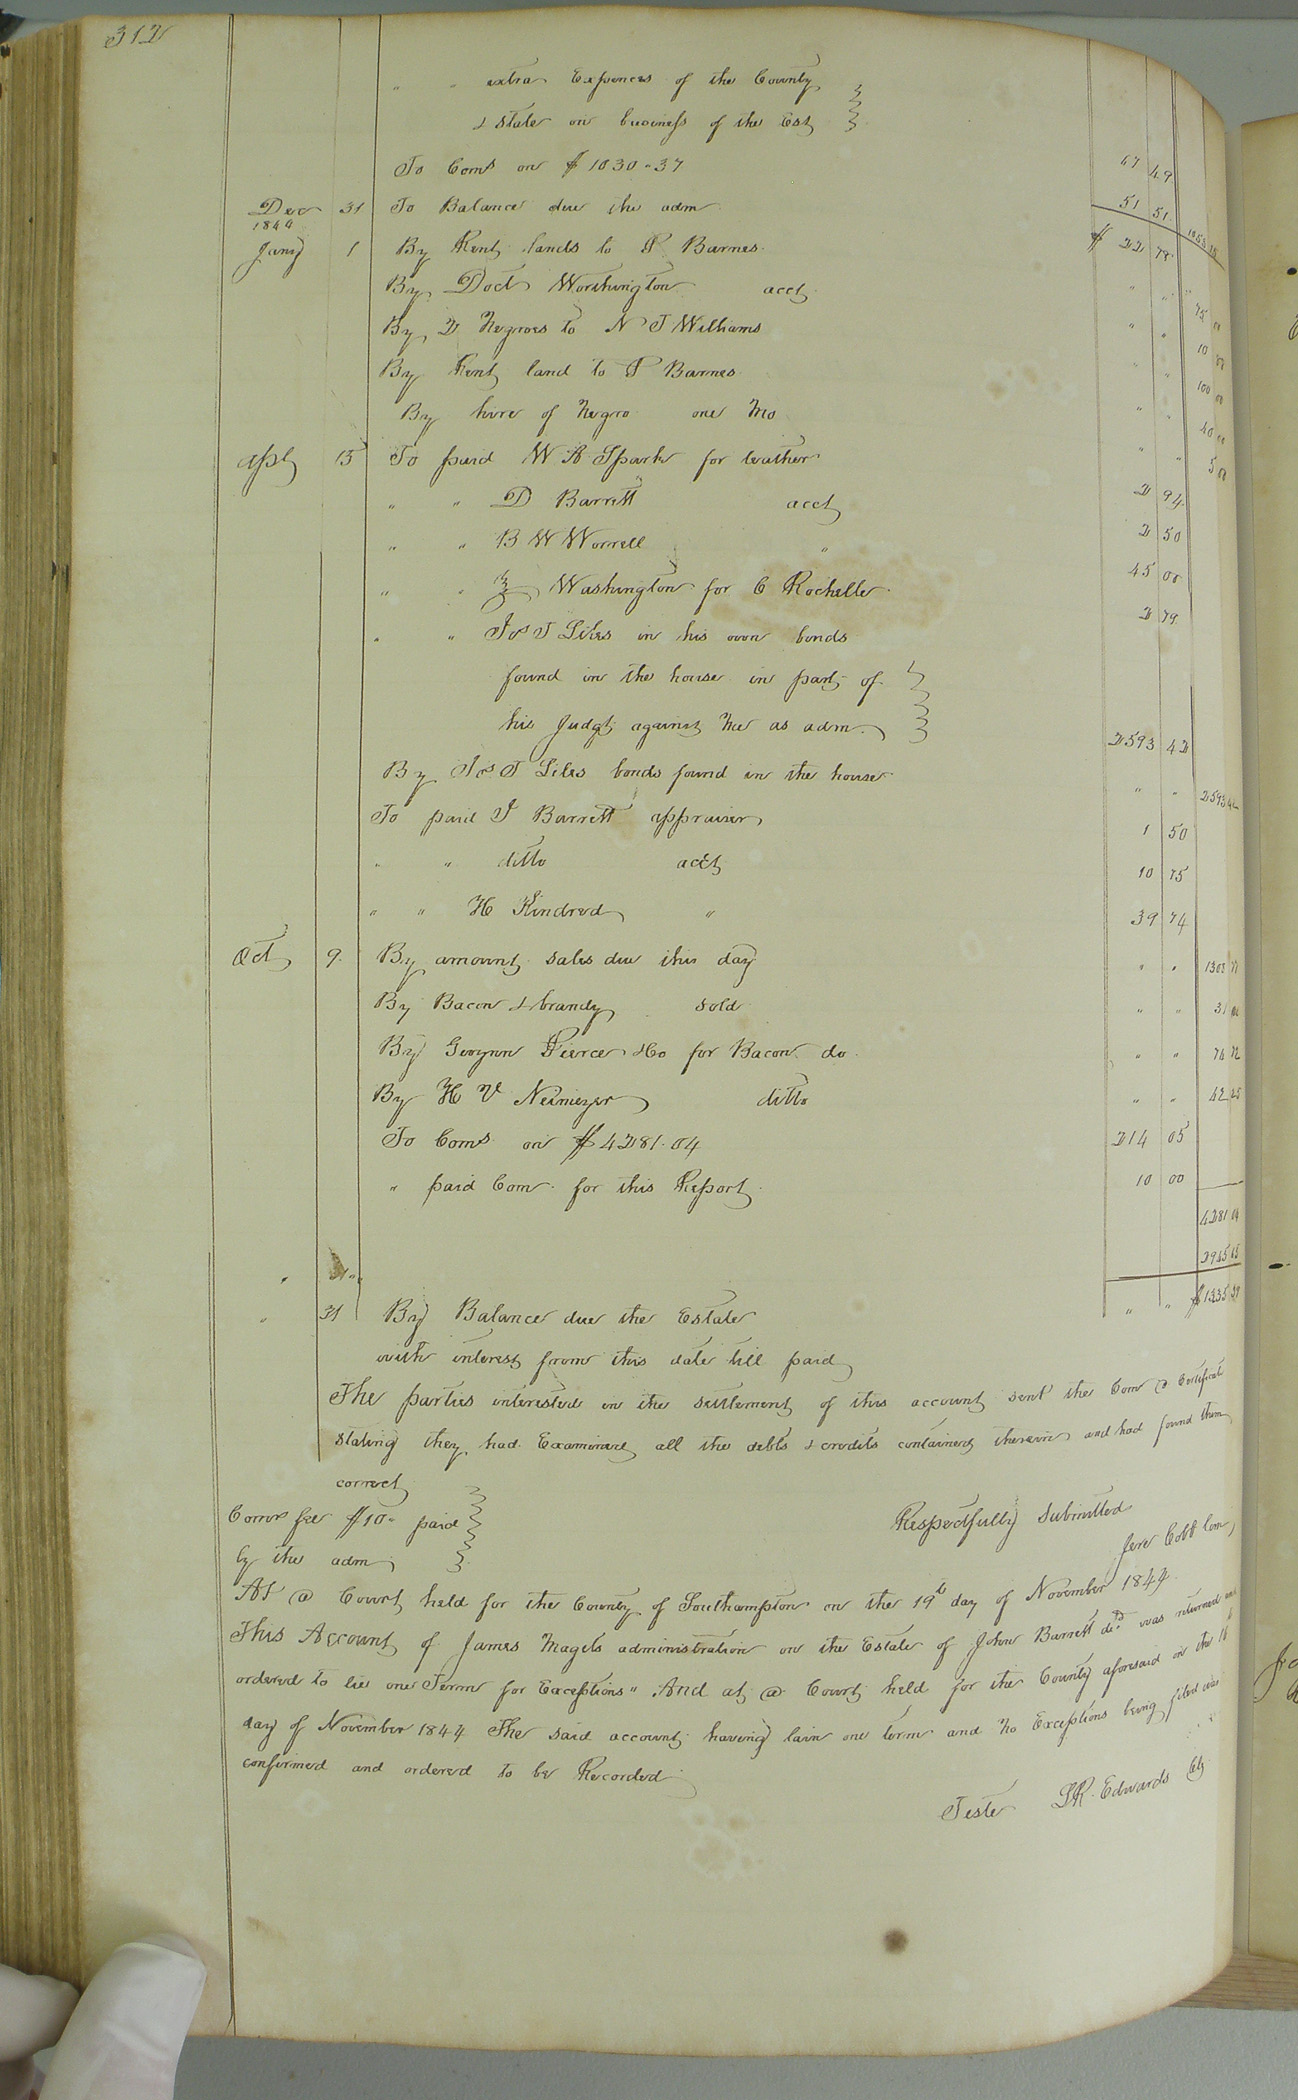 312
" " extra Expences of the County
& State on business of the Est
To Coms on $1030.37 67 49
Dec 31 To Balance due the adm 51 51
1844
Jany 1 By Rent lands to P Barnes $ 22 78
By Doct Worthington acct " " 75 00
By 2 Negroes to N T Williams " " 10 00
By Rent land to P Barnes " " 100 00
By hire of Negro one Mo " " 40 00
apl 15 To paid W A Spark for leather " " 5 00
" " D Barrett acct 2 94
" " B W Worrell " 2 50
" " Washington for C Rochelle 45 00
" " Jos T Liles in his own bonds 2 79
found in the house in part of
his Judgt against Me as adm 2593 42
By Jos T Liles bonds found in the house " " 2593 42
To paid J Barrett appraiser 1 50
" " ditto acct 10 75
" " H Kindred " 39 74
Oct 9 By amount sales due this day " "
By Bacon & brandy sold " "
By Gwynn Pierce & Co for Bacon do " "
By H V Neimeyer ditto " "
To Coms on $4281.04 214 05
" paid Com for this Report 10 00
4281 04
2945
" 31 By Balance due the Estate " "
with interest from this date till paid
The parties interested in the settlement of this account sent the Com a Certificate
stating they had Examined all the debts & credits contained therein and had found them
correct
Coms fee $10 paid Respectfully Submitted
by the adm Jere Cobb Com
At a Court held for the County of Southampton on the 19th day of November 1844
This Account of James Magets administration on the Estate of John Barrett decd was returned and
ordered to lie one Term for Exceptions" And at a Court held for the County aforesaid on the 16
day of November 1844 The said account having lain one term and No Exceptions being filed was
confirmed and ordered to be Recorded
Teste L R Edwards Clk